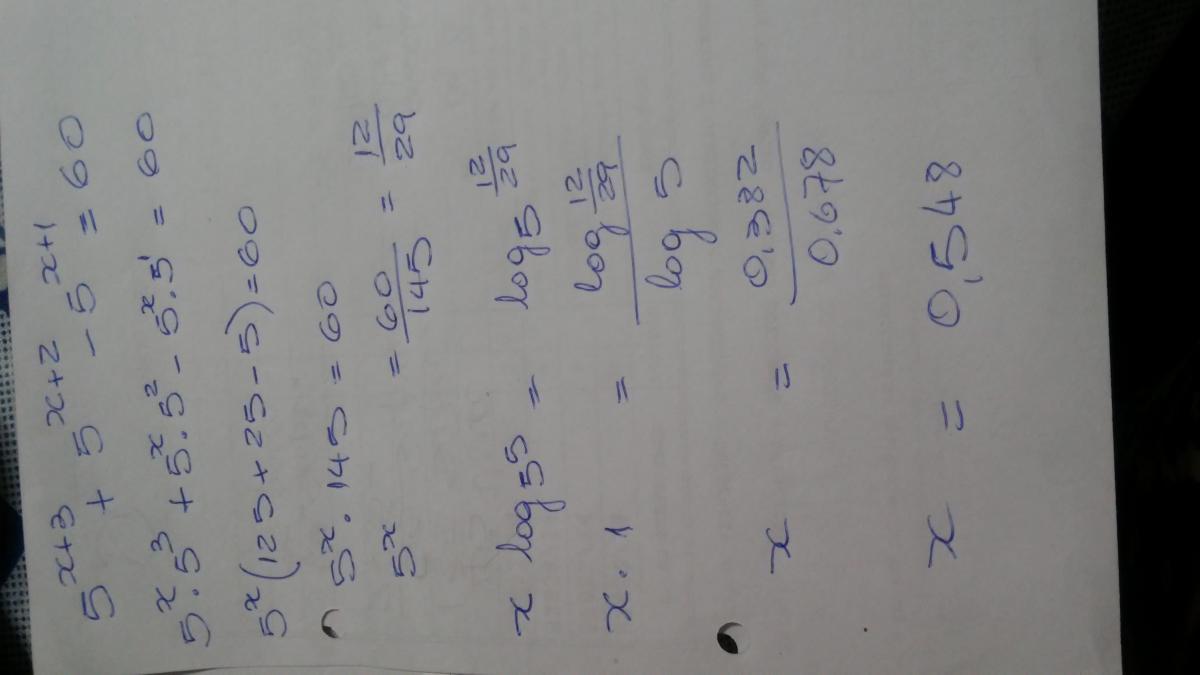 5^{x+3} + 5^{x+2} - 5^{x+1} = 60
5^x · 5^3 + 5^x · 5^2 - 5^x · 5^1 = 60
5^x (125 + 25 - 5) = 60
5^x · 145 = 60
5^x = \frac{60}{145} = \frac{12}{29}
x log_5 5 = log_5 \frac{12}{29}
x · 1 = \frac{log \frac{12}{29}}{log 5}
x = \frac{0,382}{0.678}
x = 0,548